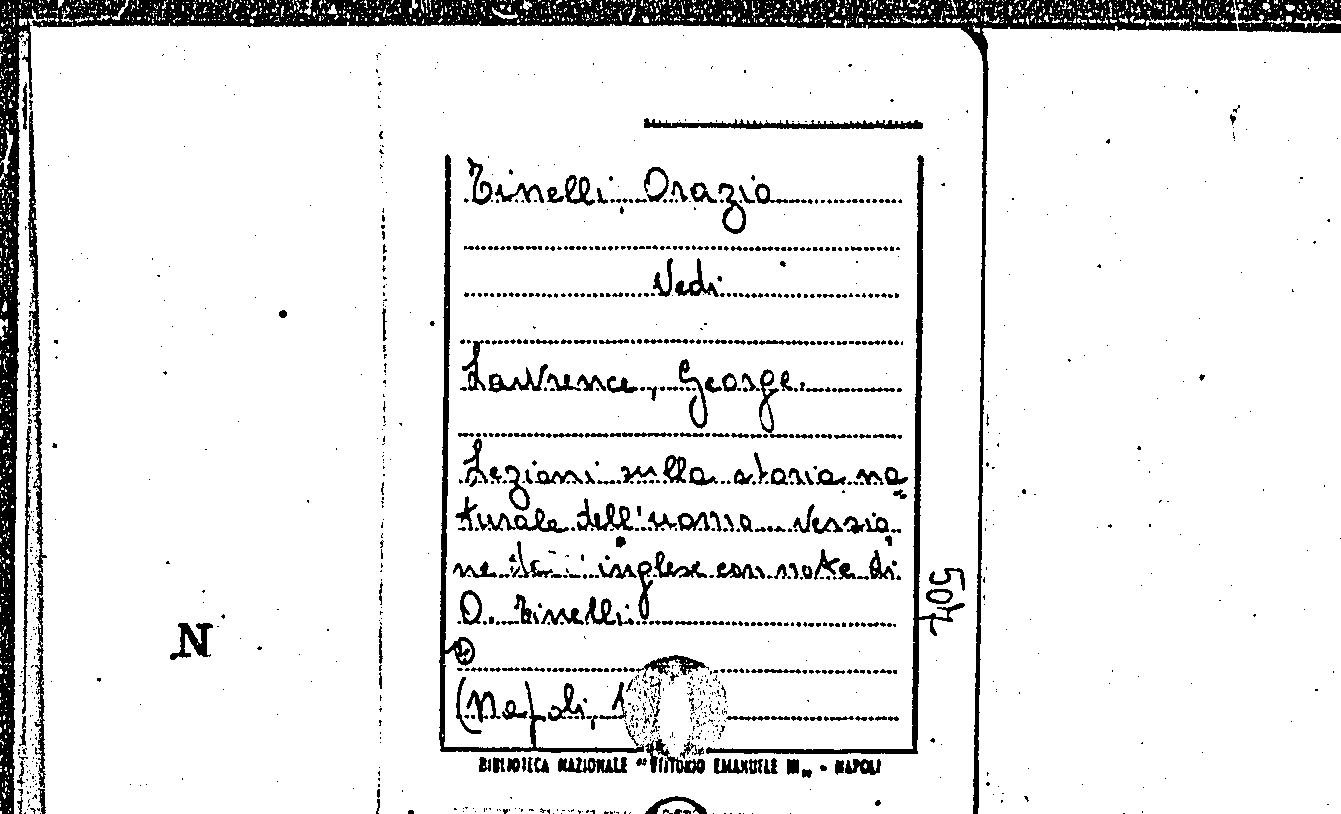 Tinelli, Orazio
Vedi
Lawrence, George.
Lezioni sulla storia na=
turale dell'uomo... Versio
ne inglese con note di
O. Tinelli.
(Napoli, 1
504
N
BIBLIOTECA NAZIONALE "VITTORIO EMANUELE III" - NAPOLI